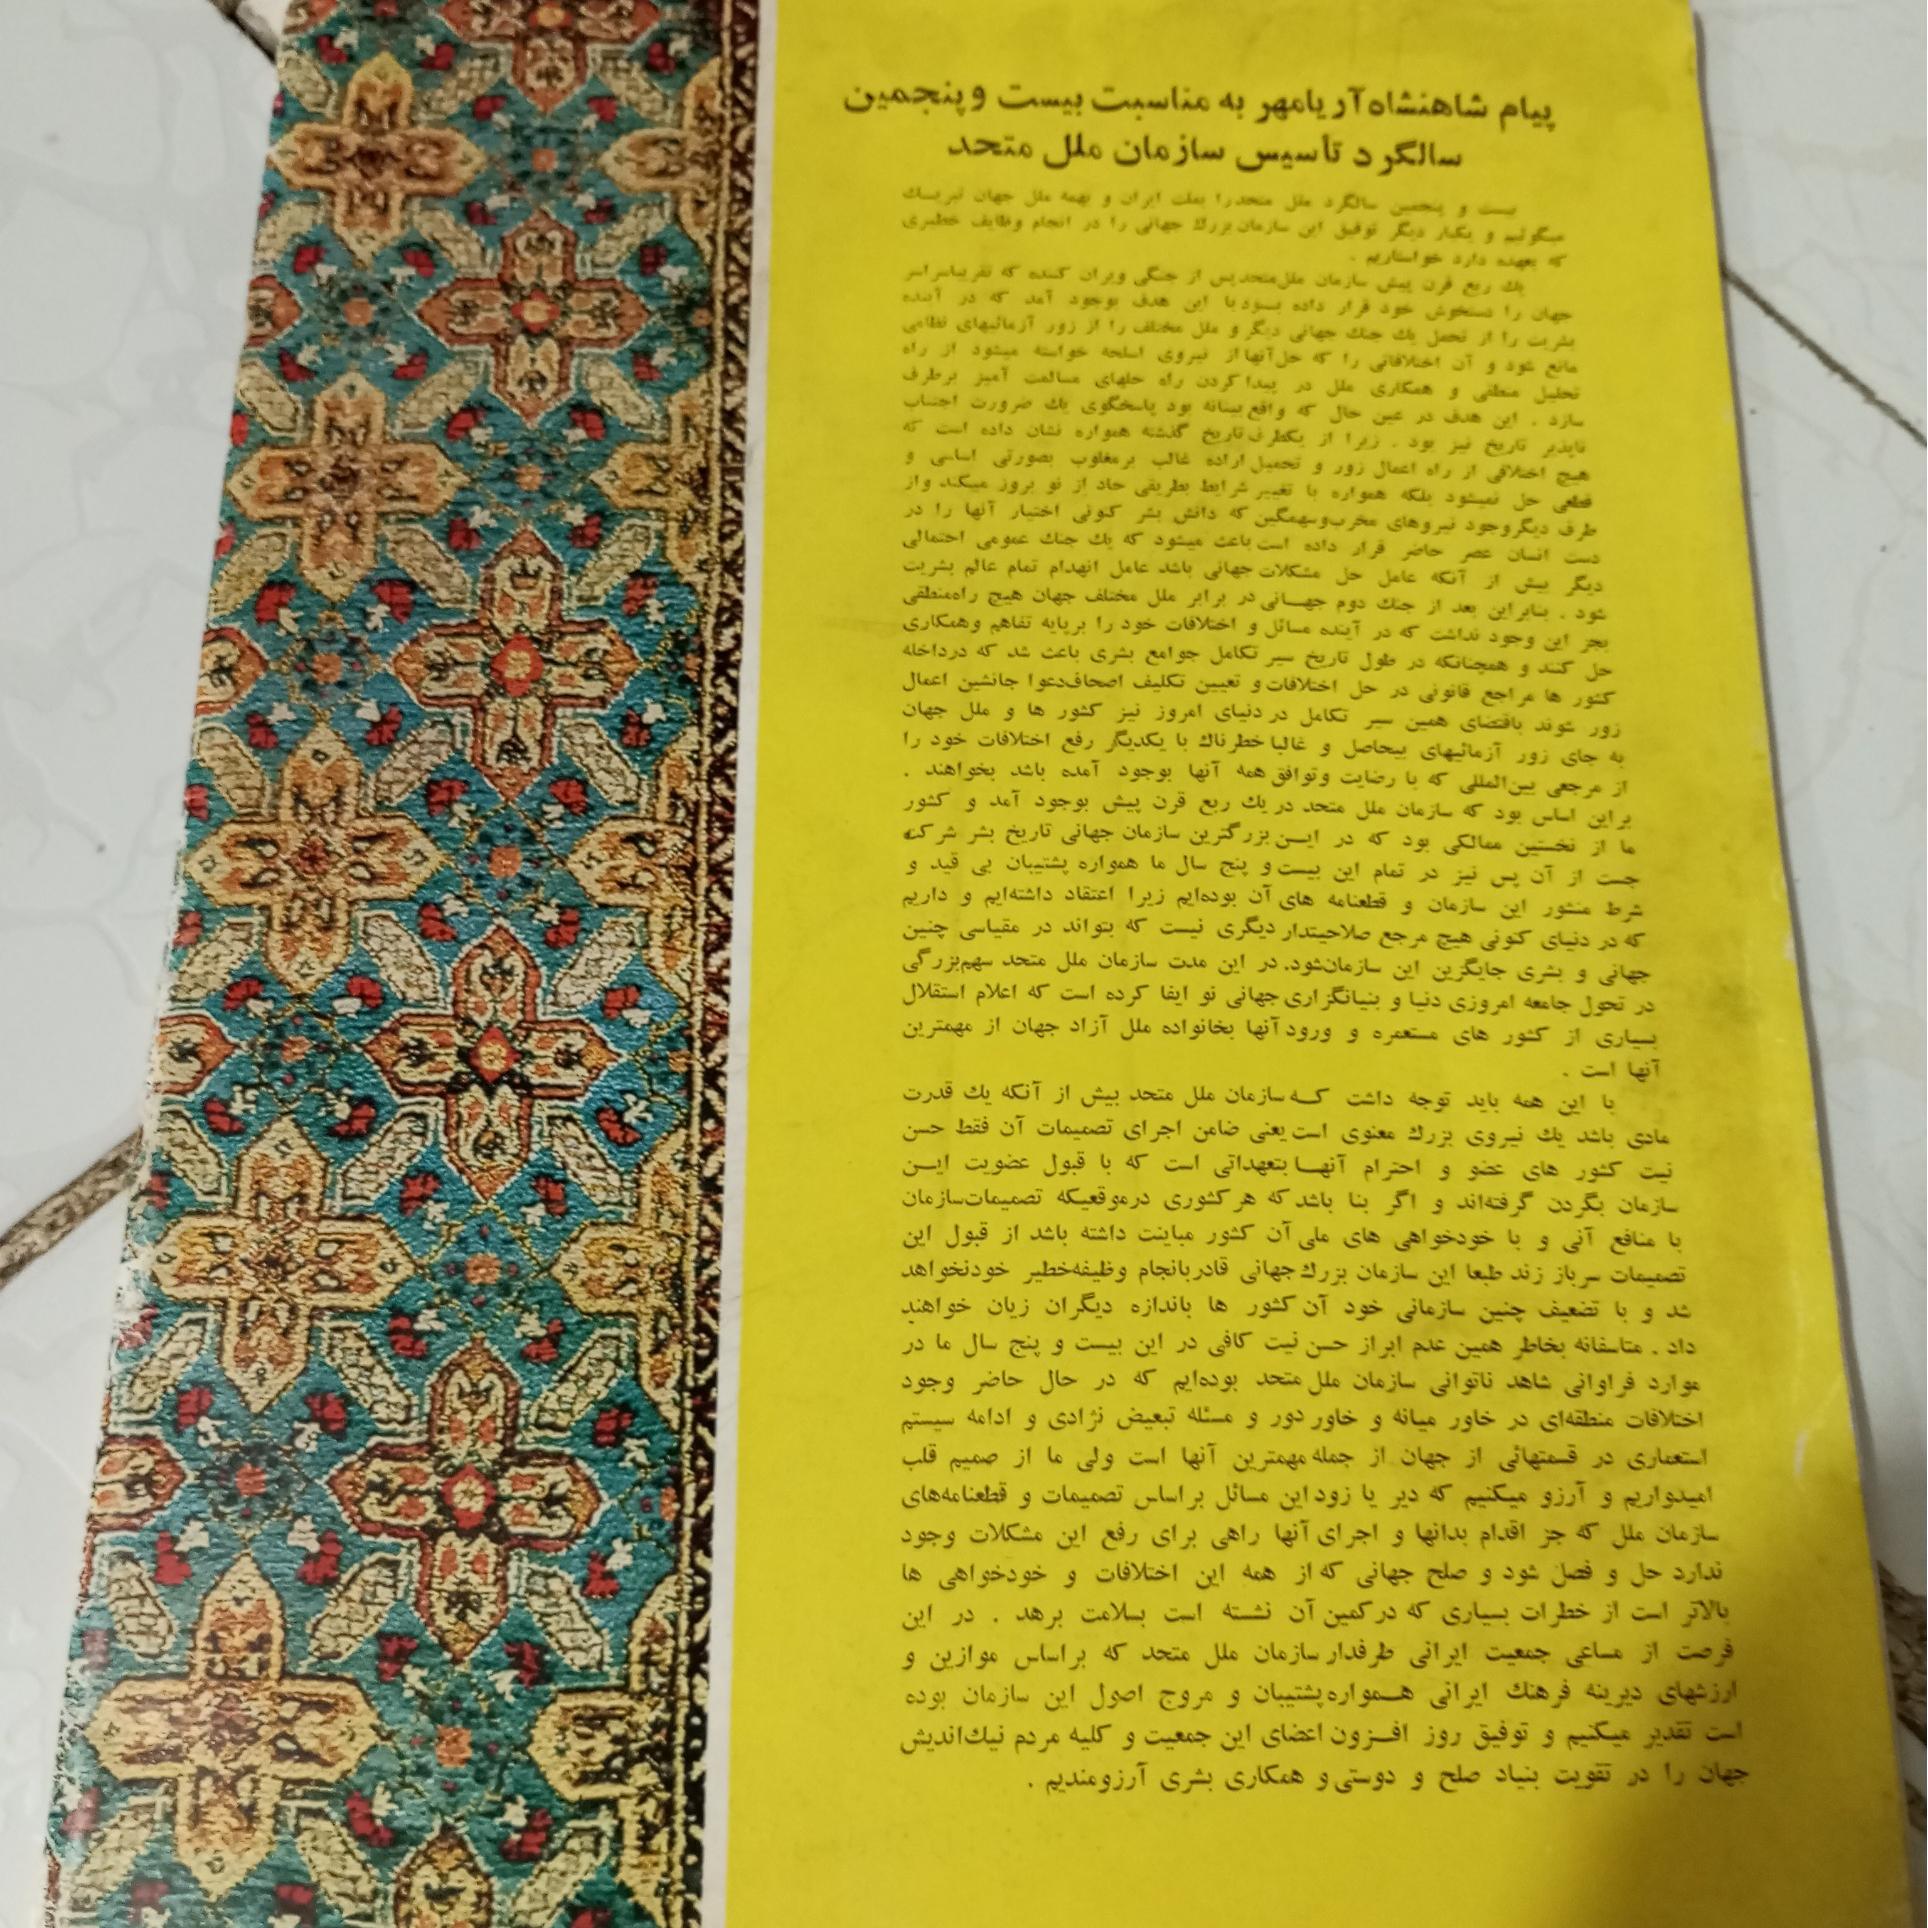 پیام شاهنشاه آریامهر به مناسبت بیست و پنجمین
سالگرد تأسیس سازمان ملل متحد
بیست و پنجمین سالگرد ملل متحد را بملت ایران و بهمه ملل جهان تبریک
میگوئیم و یکبار دیگر توفیق این سازمان بزرگ جهانی را در انجام وظایف خطیری
که بعهده دارد خواستاریم .
یك ربع قرن پیش سازمان ملل متحد پس از جنگی ویران کننده که تقریباسراسر
جهان را دستخوش خود قرار داده بود با این هدف بوجود آمد که در آینده
بشریت را از تحمل یك جنك جهانی دیگر و ملل مختلف را از زور آزمائیهای نظامی
مانع شود و آن اختلافاتی را که حل آنها از نیروی اسلحه خواسته میشود از راه
تحلیل منطقی و همکاری ملل در پیدا کردن راه حلهای مسالمت آمیز برطرف
سازد . این هدف در عین حال که واقع بینانه بود پاسخگوی یك ضرورت اجتناب
ناپذیر تاریخ نیز بود . زیرا از یکطرف تاریخ گذشته همواره نشان داده است که
هیچ اختلافی از راه اعمال زور و تحمیل اراده غالب بر مغلوب بصورتی اساسی و
قطعی حل نمیشود بلکه همواره با تغییر شرایط بطریقی حاد از نو بروز میکند و از
طرف دیگر وجود نیروهای مخرب و سهمگین که دانش بشر کنونی اختیار آنها را در
دست انسان عصر حاضر قرار داده است باعث میشود که یك جنك عمومی احتمالی
دیگر بیش از آنکه عامل حل مشکلات جهانی باشد عامل انهدام تمام عالم بشریت
شود . بنابراین بعد از جنك دوم جهانی در برابر ملل مختلف جهان هیچ راه منطقی
بجز این وجود نداشت که در آینده مسائل و اختلافات خود را بر پایه تفاهم و همکاری
حل کنند و همچنانکه در طول تاریخ سیر تکامل جوامع بشری باعث شد که در داخله
کشور ها مراجع قانونی در حل اختلافات و تعیین تکلیف اصحاف دعوا جانشین اعمال
زور شوند باقتضای همین سیر تکامل در دنیای امروز نیز کشور ها و ملل جهان
به جای زور آزمائیهای بیحاصل و غالبا خطرناك با یکدیگر رفع اختلافات خود را
از مرجعی بین‌المللی که با رضایت و توافق همه آنها بوجود آمده باشد بخواهند .
براین اساس بود که سازمان ملل متحد در یك ربع قرن پیش بوجود آمد و کشور
ما از نخستین ممالکی بود که در این بزرگترین سازمان جهانی تاریخ بشر شرکت
جست از آن پس نیز در تمام این بیست و پنج سال ما همواره پشتیبان بی قید و
شرط منشور این سازمان و قطعنامه های آن بوده‌ایم زیرا اعتقاد داشته‌ایم و داریم
که در دنیای کنونی هیچ مرجع صلاحیتدار دیگری نیست که بتواند در مقیاسی چنین
جهانی و بشری جایگزین این سازمان شود. در این مدت سازمان ملل متحد سهم بزرگی
در تحول جامعه امروزی دنیا و بنیانگزاری جهانی نو ایفا کرده است که اعلام استقلال
بسیاری از کشور های مستعمره و ورود آنها بخانواده ملل آزاد جهان از مهمترین
آنها است .
با این همه باید توجه داشت که سازمان ملل متحد بیش از آنکه یك قدرت
مادی باشد یك نیروی بزرك معنوی است یعنی ضامن اجرای تصمیمات آن فقط حسن
نیت کشور های عضو و احترام آنها بتعهداتی است که با قبول عضویت این
سازمان بگردن گرفته‌اند و اگر بنا باشد که هر کشوری در موقعیکه تصمیمات سازمان
با منافع آنی و با خودخواهی های ملی آن کشور مباینت داشته باشد از قبول این
تصمیمات سرباز زند طبعا این سازمان بزرك جهانی قادر بانجام وظیفه خطیر خود نخواهد
شد و با تضعیف چنین سازمانی خود آن کشور ها باندازه دیگران زیان خواهند
داد . متاسفانه بخاطر همین عدم ابراز حسن نیت کافی در این بیست و پنج سال ما در
موارد فراوانی شاهد ناتوانی سازمان ملل متحد بوده‌ایم که در حال حاضر وجود
اختلافات منطقه‌ای در خاور میانه و خاور دور و مسئله تبعیض نژادی و ادامه سیستم
استعماری در قسمتهائی از جهان از جمله مهمترین آنها است ولی ما از صمیم قلب
امیدواریم و آرزو میکنیم که دیر یا زود این مسائل بر اساس تصمیمات و قطعنامه‌های
سازمان ملل که جز اقدام بدانها و اجرای آنها راهی برای رفع این مشکلات وجود
ندارد حل و فصل شود و صلح جهانی که از همه این اختلافات و خودخواهی ها
بالاتر است از خطرات بسیاری که در کمین آن نشسته است بسلامت برهد . در این
فرصت از مساعی جمعیت ایرانی طرفدار سازمان ملل متحد که بر اساس موازین و
ارزشهای دیرینه فرهنك ایرانی همواره پشتیبان و مروج اصول این سازمان بوده
است تقدیر میکنیم و توفیق روز افزون اعضای این جمعیت و کلیه مردم نیك‌اندیش
جهان را در تقویت بنیاد صلح و دوستی و همکاری بشری آرزومندیم .